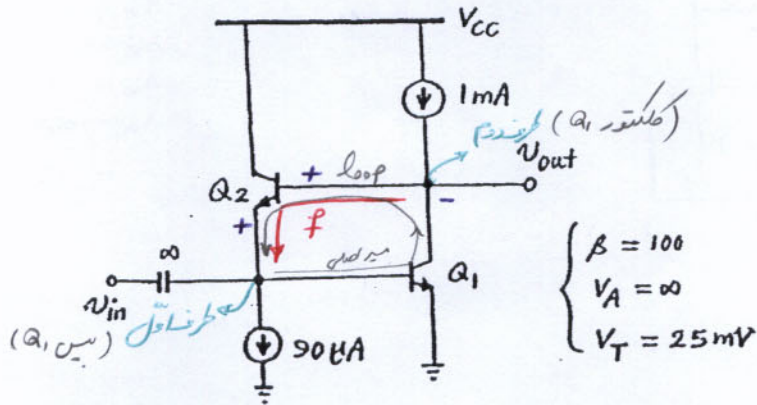 V_CC
1mA
(کلکتور Q₁) طرف دوم
v_out
loop
+
−
Q₂
+
f
مسیر اصلی
Q₁
∞
v_in
طرف اوّل
(بیس Q₁)
90μA
β = 100
V_A = ∞
V_T = 25 mV